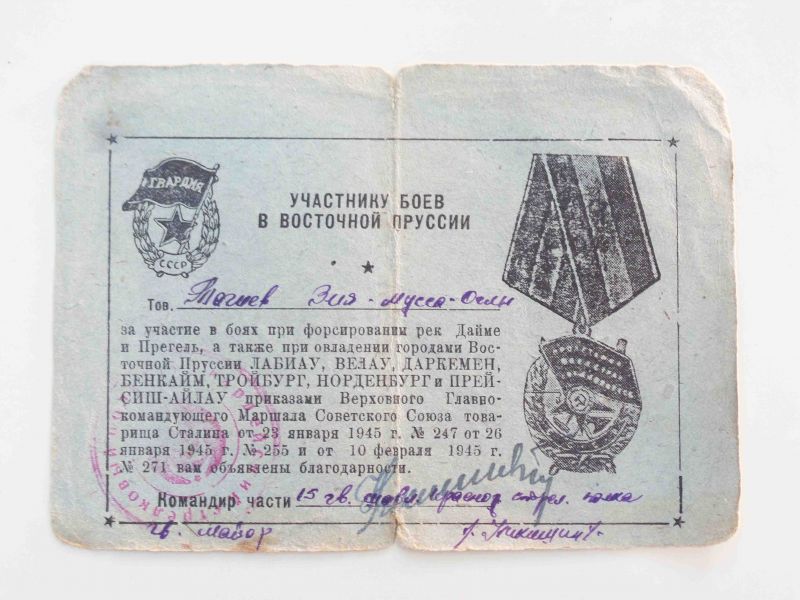 ГВАРДИЯ
СССР
УЧАСТНИКУ БОЕВ
В ВОСТОЧНОЙ ПРУССИИ
Тов. Тагиев Зия-Мусса-Оглы
за участие в боях при форсировании рек Дайме
и Прегель, а также при овладении городами Вос-
точной Пруссии ЛАБИАУ, ВЕЛАУ, ДАРКЕМЕН,
БЕНКАЙМ, ТРОЙБУРГ, НОРДЕНБУРГ и ПРЕЙ-
СИШ-АЙЛАУ приказами Верховного Главно-
командующего Маршала Советского Союза това-
рища Сталина от 23 января 1945 г. № 247 от 26
января 1945 г. № 255 и от 10 февраля 1945 г.
№ 271 вам объявлены благодарности.
Командир части 15 гв. стрел. полка
гв. майор